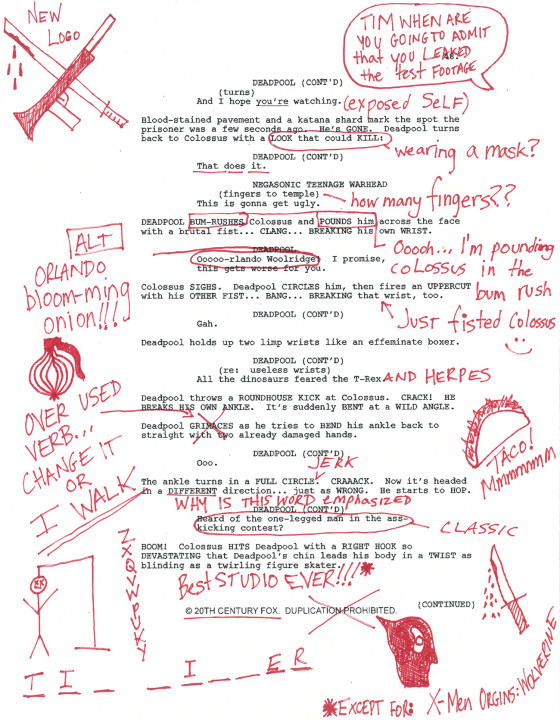 NEW
LOGO
TIM WHEN ARE
YOU GOING TO ADMIT
that you LEAKED
the test FOOTAGE
DEADPOOL (CONT'D)
(turns)
And I hope you're watching.
(exposed SELF)
Blood-stained pavement and a katana shard mark the spot the
prisoner was a few seconds ago. He's GONE. Deadpool turns
back to Colossus with a LOOK that could KILL:
wearing a mask?
DEADPOOL (CONT'D)
That does it.
NEGASONIC TEENAGE WARHEAD
(fingers to temple)
This is gonna get ugly.
how many fingers??
DEADPOOL BUM-RUSHES Colossus and POUNDS him across the face
with a brutal fist... CLANG... BREAKING his own WRIST.
Ooooh... I'm pounding
COLOSSUS in the
bum rush
DEADPOOL
Ooooo-rlando Woolridge! I promise,
this gets worse for you.
ALT
ORLANDO
bloom-ming
onion!!!
Colossus SIGHS. Deadpool CIRCLES him, then fires an UPPERCUT
with his OTHER FIST... BANG... BREAKING that wrist, too.
Just fisted Colossus
DEADPOOL (CONT'D)
Gah.
Deadpool holds up two limp wrists like an effeminate boxer.
DEADPOOL (CONT'D)
(re: useless wrists)
All the dinosaurs feared the T-Rex.
AND HERPES
Deadpool throws a ROUNDHOUSE KICK at Colossus. CRACK! HE
BREAKS HIS OWN ANKLE. It's suddenly BENT at a WILD ANGLE.
OVER USED
VERB...
CHANGE IT
OR
I WALK
Deadpool GRIMACES as he tries to BEND his ankle back to
straight with two already damaged hands.
TACO!
Mmmmmmm
DEADPOOL (CONT'D)
Ooo.
JERK
The ankle turns in a FULL CIRCLE. CRAAACK. Now it's headed
in a DIFFERENT direction... just as WRONG. He starts to HOP.
WHY IS THIS WORD emphasized
DEADPOOL (CONT'D)
Heard of the one-legged man in the ass-
kicking contest?
CLASSIC
BOOM! Colossus HITS Deadpool with a RIGHT HOOK so
DEVASTATING that Deadpool's chin leads his body in a TWIST as
blinding as a twirling figure skater.
Best STUDIO EVER!!!*
© 20TH CENTURY FOX. DUPLICATION PROHIBITED.
(CONTINUED)
T I _ _ I _ _ E R
*EXCEPT FOR: X-Men ORGINS: WOLVERINE